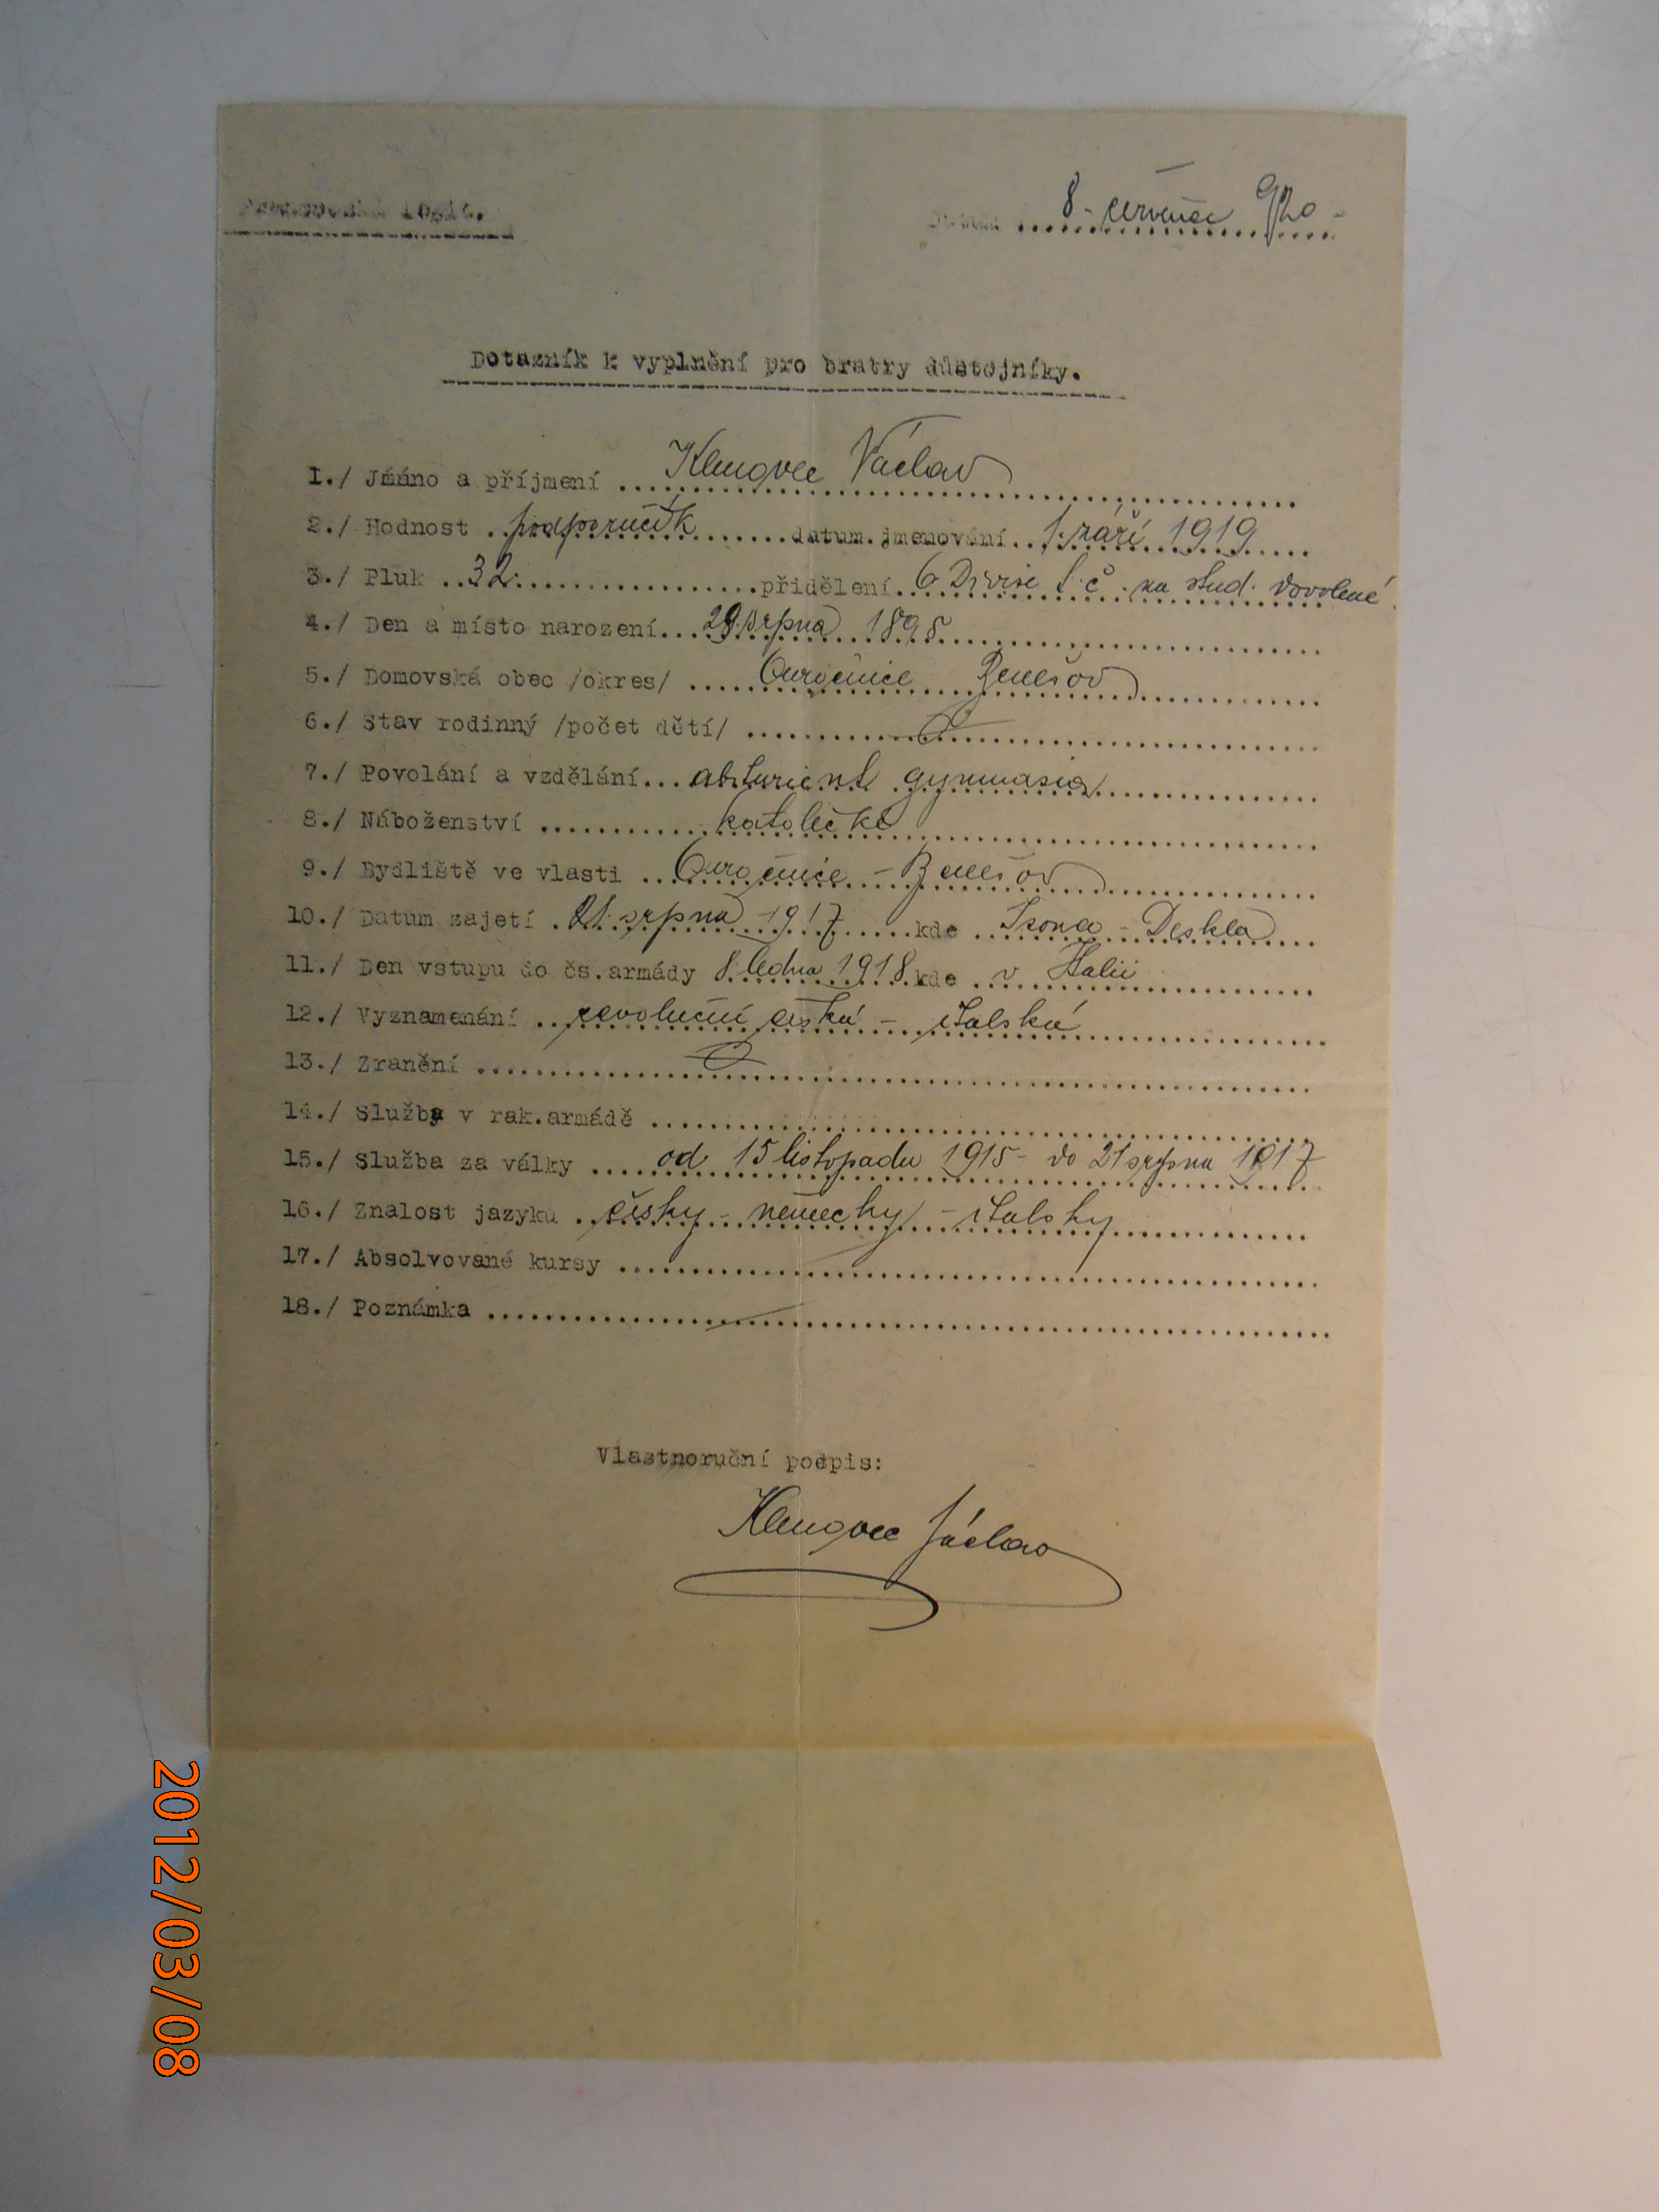 8. července 920
Dotazník k vyplnění pro bratry důstojníky.
1./ Jméno a příjmení Klenovec Václav
2./ Hodnost podporučík datum jmenování 1. září 1919
3./ Pluk 32. přidělení 6 Divise t.č. na stud. dovolené.
4./ Den a místo narození 29. srpna 1895
5./ Domovská obec /okres/ Benešov
6./ Stav rodinný /počet dětí/
7./ Povolání a vzdělání abiturient gymnasia
8./ Náboženství katolické
9./ Bydliště ve vlasti Benešov
10./ Datum zajetí 21. srpna 1917 kde Isonzo - Deskla
11./ Den vstupu do čs. armády 8. ledna 1918 kde v Italii
12./ Vyznamenání revoluční česká - italská
13./ Zranění
14./ Služba v rak. armádě
15./ Služba za války od 15 listopadu 1915 - do 21 srpna 1917
16./ Znalost jazyků česky - německy - italsky
17./ Absolvované kursy
18./ Poznámka
Vlastnoruční podpis:
Klenovec Václav
2012/03/08